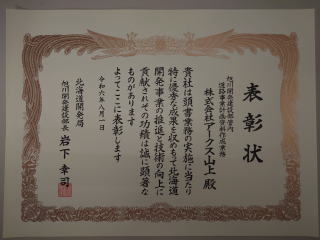 表彰状
旭川開発建設部管内
道路事業計画資料作成業務
株式会社アークス山上 殿
貴社は頭書業務の実施に当たり
特に優秀な成果を収めもって北海道
開発事業の推進と技術の向上に
貢献されその功績は誠に顕著な
ものがあります
よってここに表彰します
令和六年八月一日
北海道開発局
旭川開発建設部長 岩下 幸司